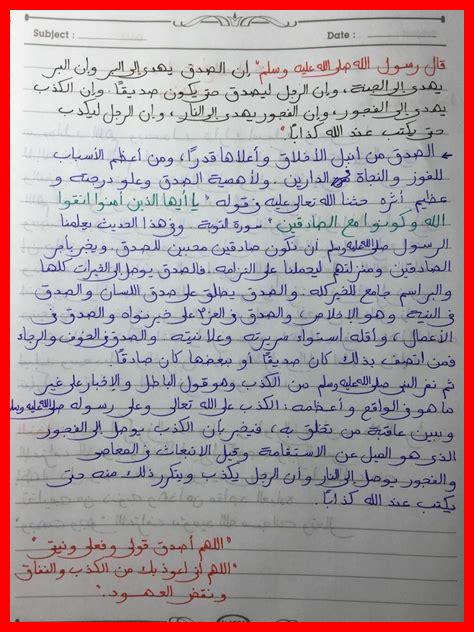 Subject :
Date :
قال رسول الله صلى الله عليه وسلم" إن الصدق يهدي إلى البر وإن البر
يهدي إلى الجنة، وإن الرجل ليصدق حتى يكون صديقًا. وإن الكذب
يهدي إلى الفجور، وإن الفجور يهدي إلى النار، وإن الرجل ليكذب
حتى يكتب عند الله كذابًا".
الصدق من أنبل الأخلاق وأعلاها قدرًا، ومن أعظم الأسباب
للفوز والنجاة في الدارين. ولأهمية الصدق وعلو درجته و
عظيم أثره حثنا الله تعالى عليه في قوله "يا أيها الذين آمنوا اتقوا
الله وكونوا مع الصادقين" سورة التوبة وفي هذا الحديث يعلمنا
الرسول صلى الله عليه وسلم أن نكون صادقين محبين للصدق. ويخبر بأجر
الصادقين ومنزلتهم ليحملنا على التزامه. فالصدق يوصل إلى الخيرات كلها
والبر اسم جامع للخير كله. والصدق يطلق على صدق اللسان والصدق
في النية وهو الإخلاص، والصدق في العزم على خير نواه والصدق في
الأعمال، وأقله استواء سريرته وعلانيته. والصدق في الخوف والرجاء
فمن اتصف بذلك كان صديقًا أو ببعضها كان صادقًا.
ثم نفر النبي صلى الله عليه وسلم من الكذب وهو قول الباطل والإخبار على غير
ما هو في الواقع وأعظمه: الكذب على الله تعالى وعلى رسوله صلى الله عليه وسلم
ويبين عاقبة من تخلق به، فيخبر بأن الكذب يوصل إلى الفجور
الذي هو الميل عن الاستقامة وقيل الانبعاث في المعاصي
والفجور يوصل إلى النار وأن الرجل يكذب ويتكرر ذلك منه حتى
يكتب عند الله كذابًا.
"اللهم أصدق قولي وفعلي ونيتي"
"اللهم إني أعوذ بك من الكذب والنفاق
ونقض العهود."